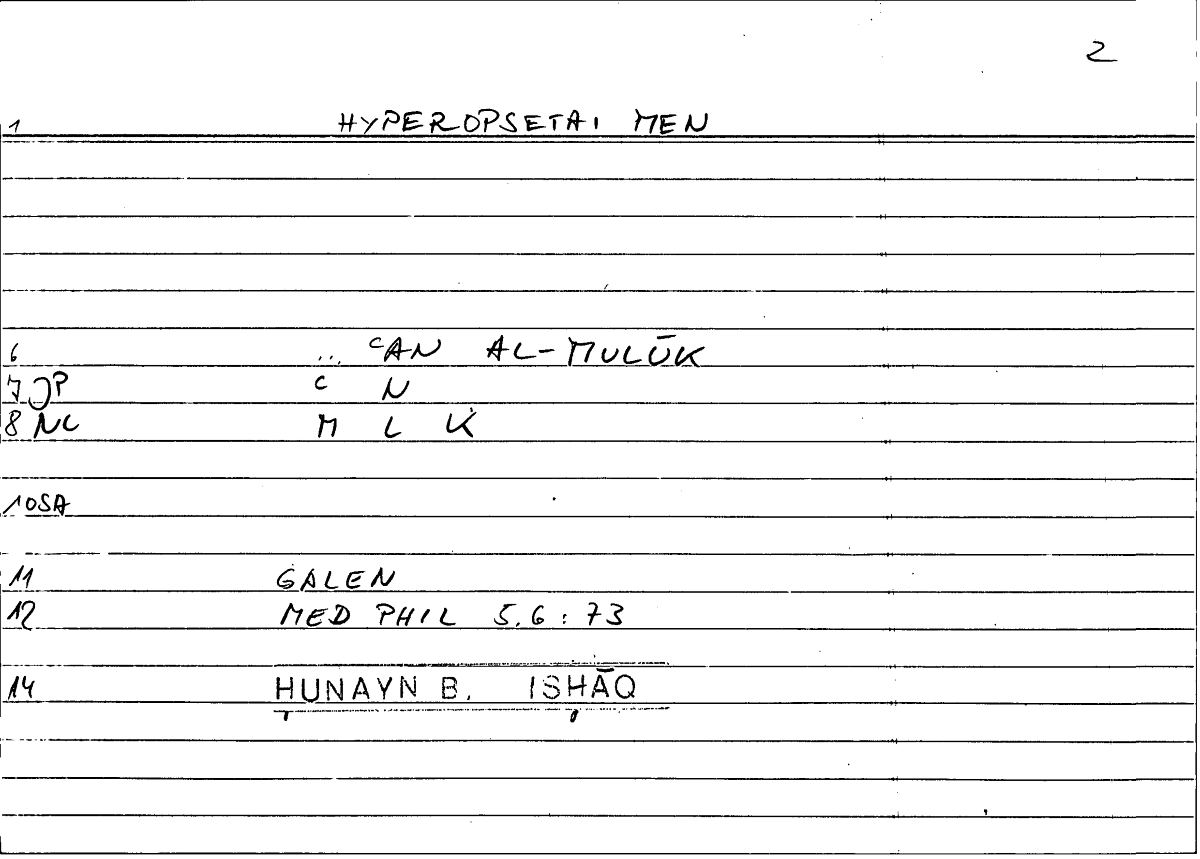 2
1 HYPEROPSETAI MEN
6 ... ᶜAN AL-MULŪK
7 JP ᶜ N
8 NC M L K
10 SA
11 GALEN
12 MED PHIL 5.6 : 73
14 ḤUNAYN B. ISḤĀQ